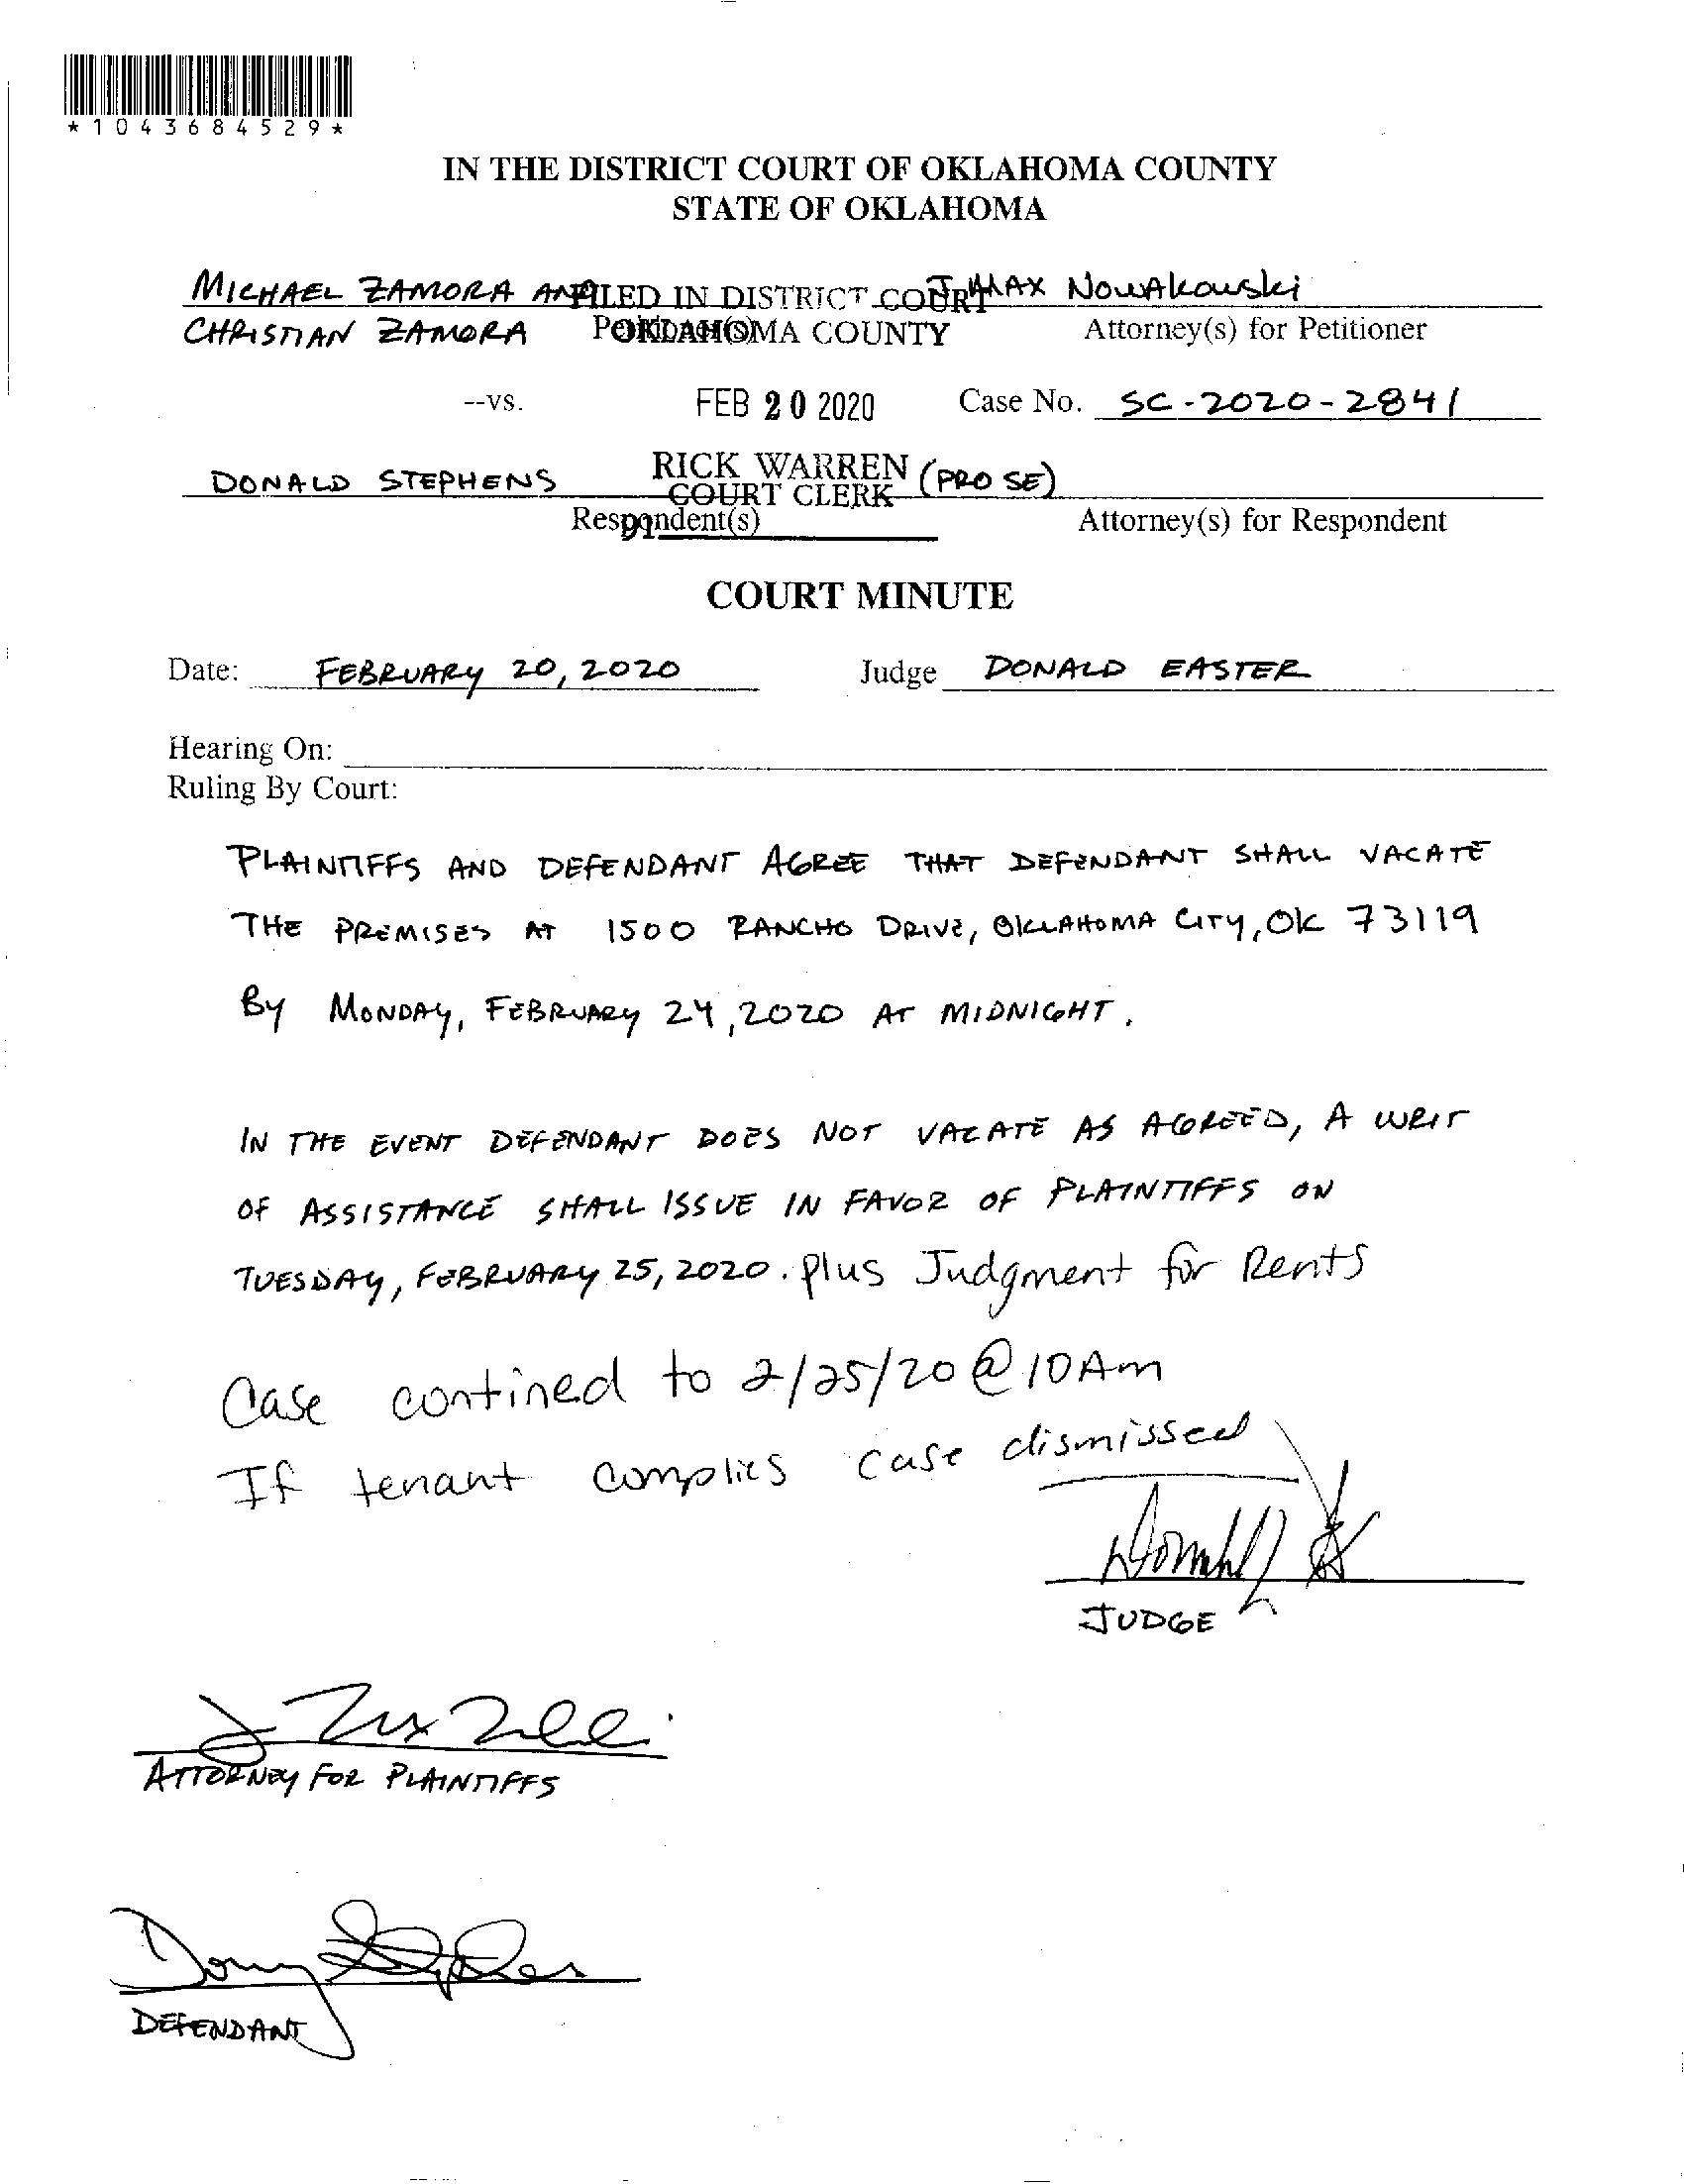 *1043684529*
IN THE DISTRICT COURT OF OKLAHOMA COUNTY
STATE OF OKLAHOMA
MICHAEL ZAMORA AND FILED IN DISTRICT COURT J. MAX Nowakowski
CHRISTIAN ZAMORA Petitioner(s) OKLAHOMA COUNTY Attorney(s) for Petitioner
--vs. FEB 20 2020 Case No. SC-2020-2841
RICK WARREN
DONALD STEPHENS COURT CLERK (PRO SE)
Respondent(s) 91 Attorney(s) for Respondent
COURT MINUTE
Date: FEBRUARY 20, 2020 Judge DONALD EASTER
Hearing On:
Ruling By Court:
PLAINTIFFS AND DEFENDANT AGREE THAT DEFENDANT SHALL VACATE
THE PREMISES AT 1500 RANCHO DRIVE, OKLAHOMA CITY, OK 73119
BY MONDAY, FEBRUARY 24, 2020 AT MIDNIGHT.
IN THE EVENT DEFENDANT DOES NOT VACATE AS AGREED, A WRIT
OF ASSISTANCE SHALL ISSUE IN FAVOR OF PLAINTIFFS ON
TUESDAY, FEBRUARY 25, 2020. plus Judgment for Rents
Case contined to 2/25/20 @ 10Am
If tenant complies case dismissed
JUDGE
ATTORNEY FOR PLAINTIFFS
DEFENDANT